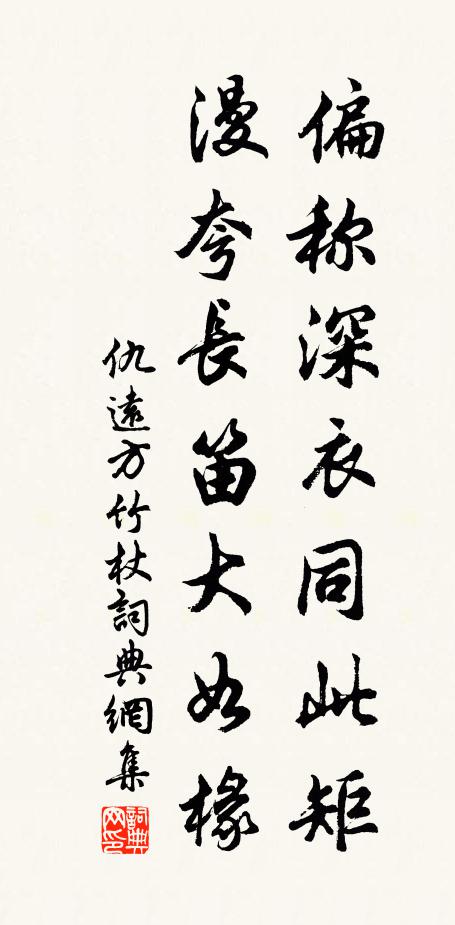 偏称深衣同此矩
漫夸長笛大如椽
仇遠方竹杖詞典網集
詞典网印